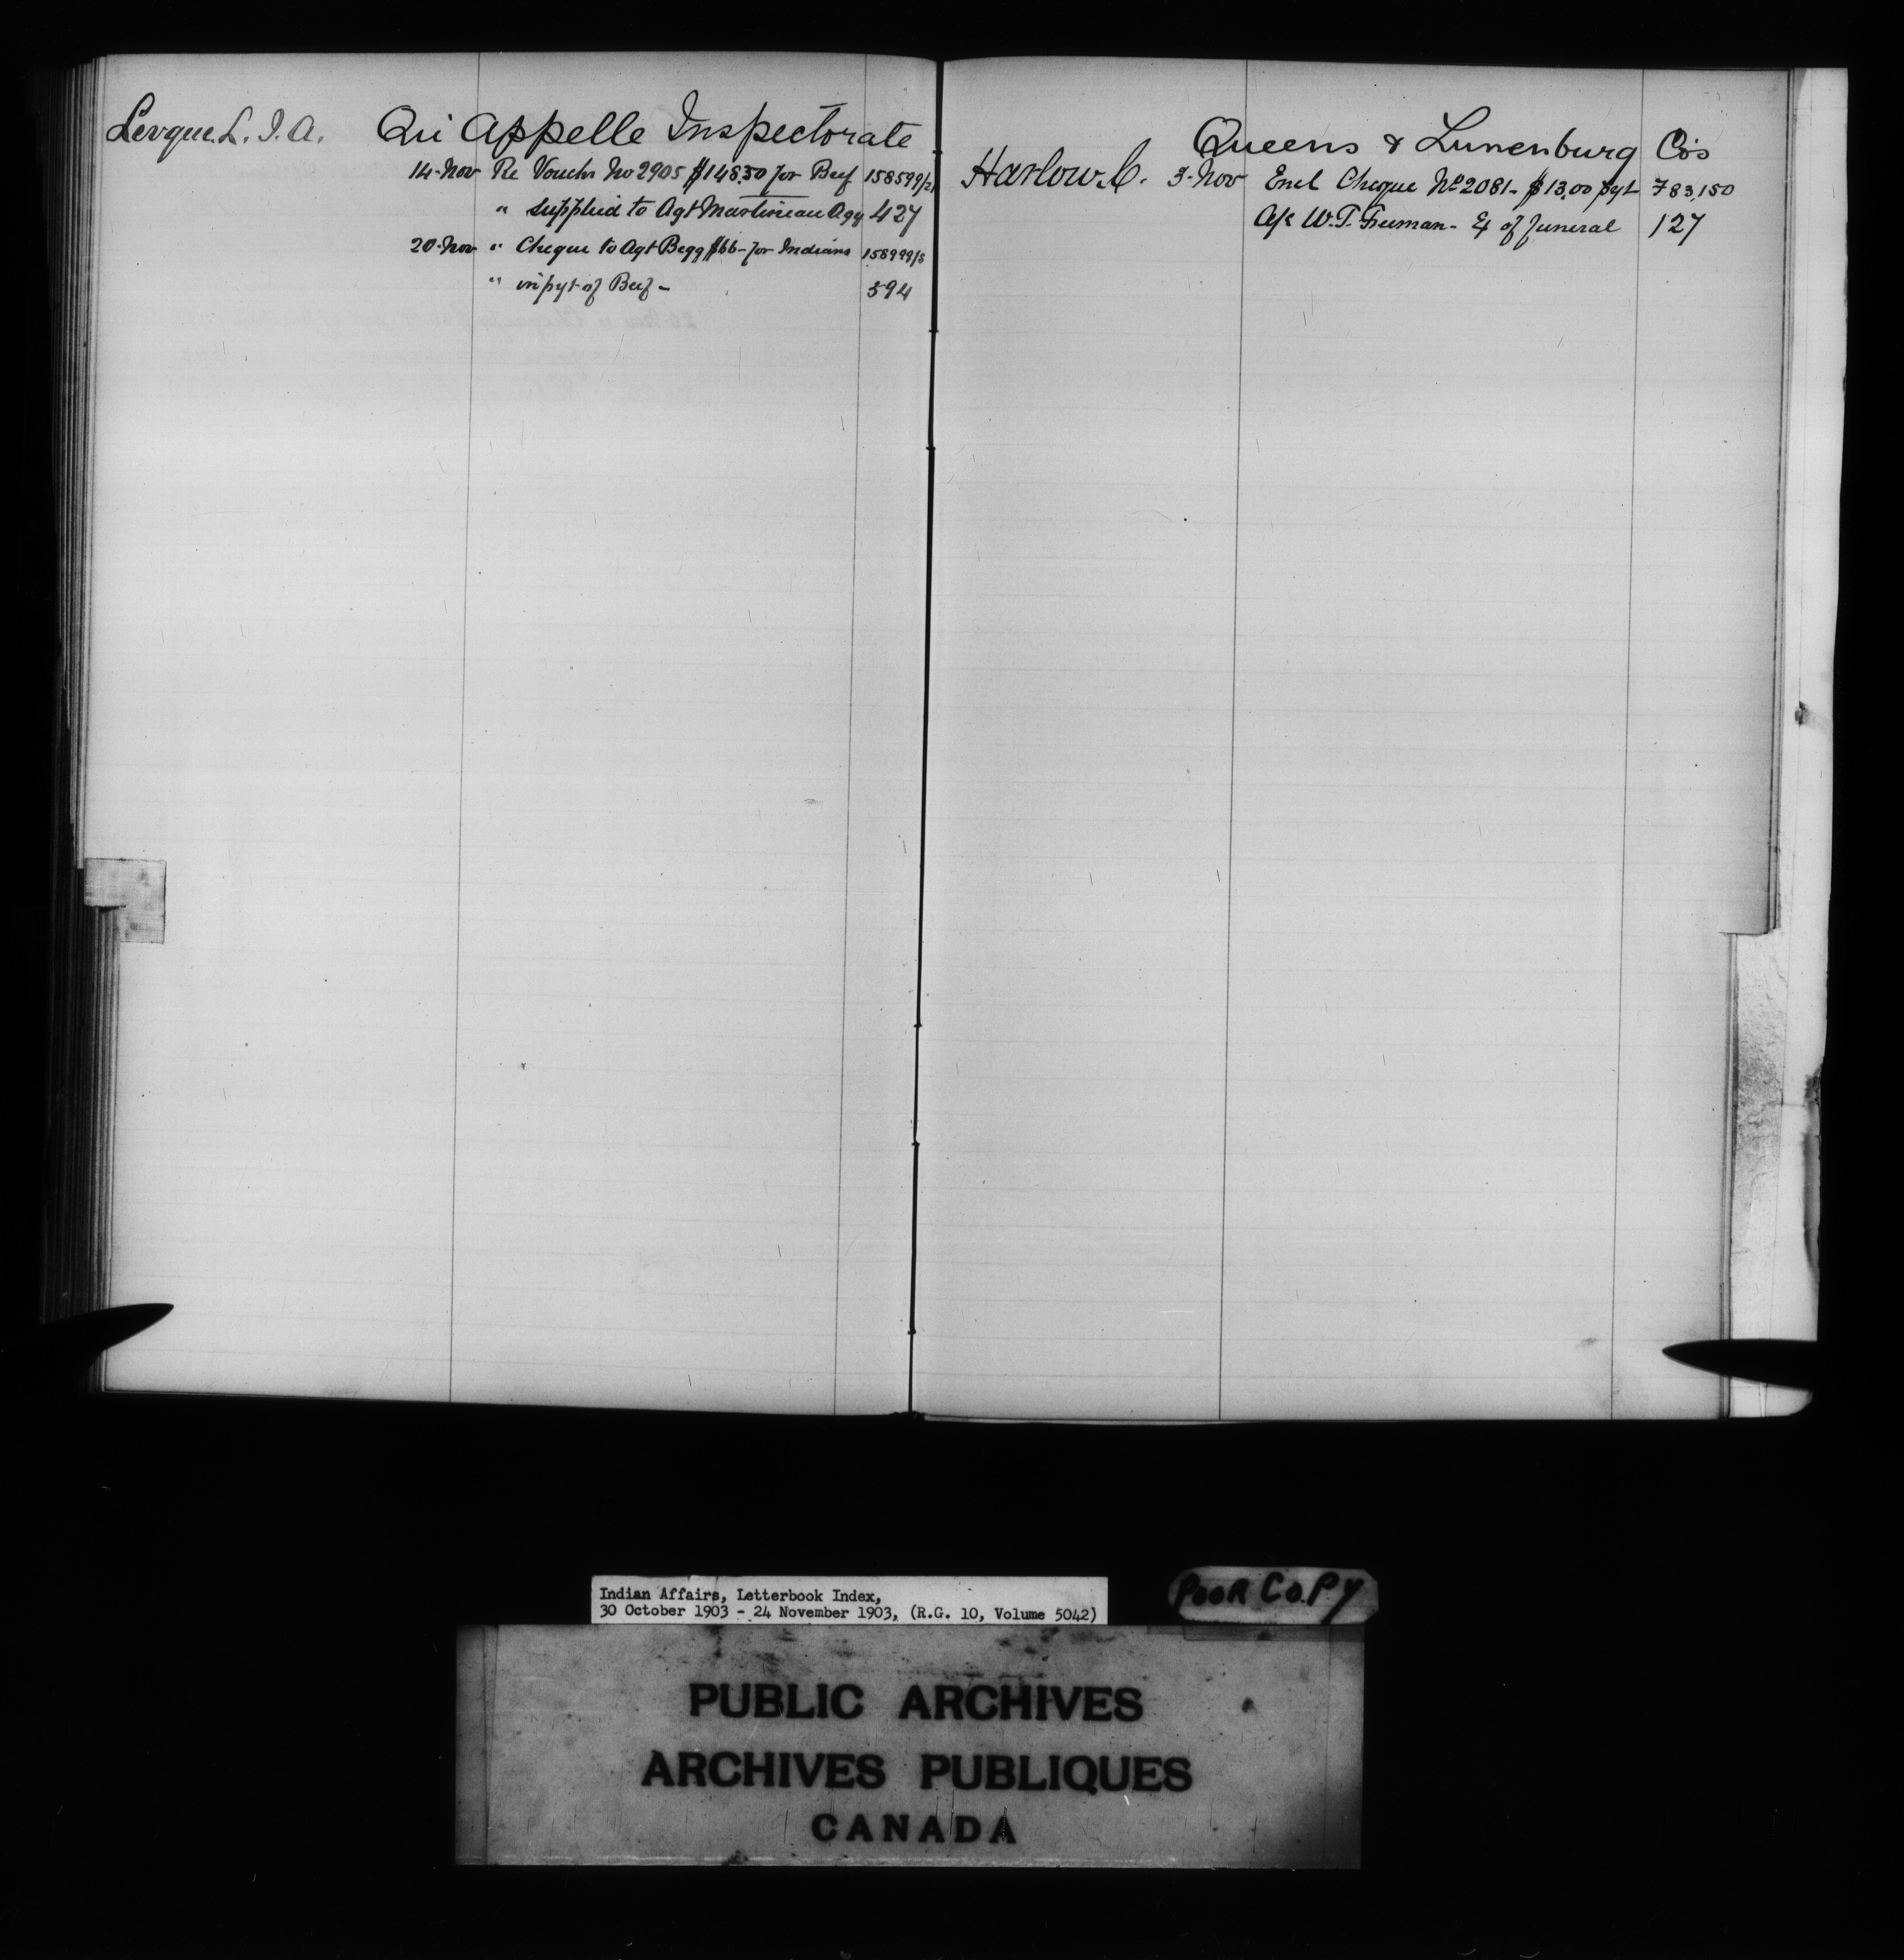 Levque. L. I. A. Qu'Appelle Inspectorate
14-Nov Re Vouchr No 2905 $148.50 for Beef 158599/21
" supplied to Agt Martineau Agy 427
20-Nov " Cheque to Agt Begg $66- for Indians 158999/8
" in pyt of Beef - 594
Queens & Lunenburg Co's
Harlow. C. 3-Nov Encl Cheque No 2081- $13.00 pyt 783,150
A/c W.T. Freeman- Ex of funeral 127
Indian Affairs, Letterbook Index,
30 October 1903 - 24 November 1903, (R.G. 10, Volume 5042)
POOR COPY
PUBLIC ARCHIVES
ARCHIVES PUBLIQUES
CANADA